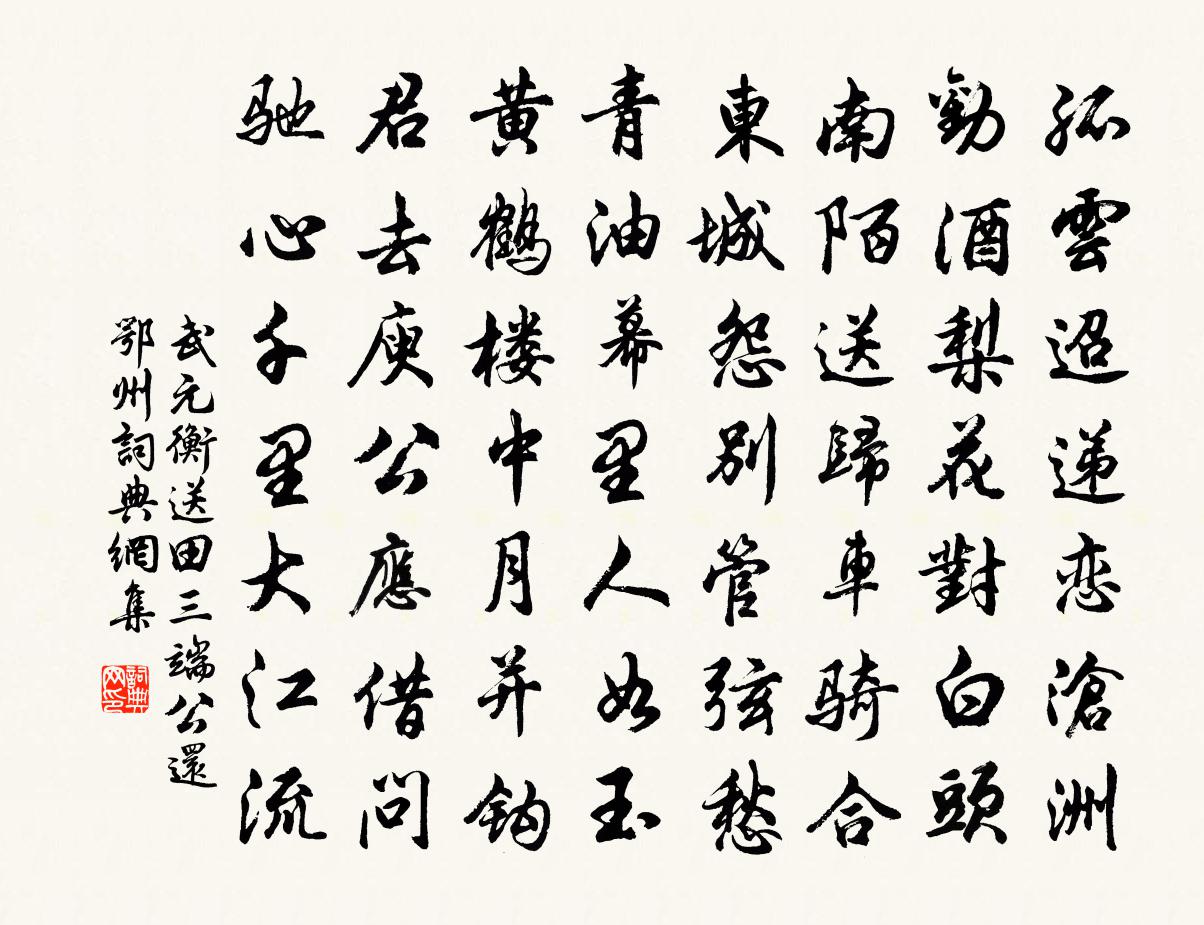 孤雲迢递恋滄洲
勸酒梨花對白頭
南陌送歸車骑合
東城怨別管弦愁
青油幕里人如玉
黃鶴楼中月并鈎
君去庾公應借問
驰心千里大江流
武元衡送田三端公還
鄂州詞典網集
詞典网印